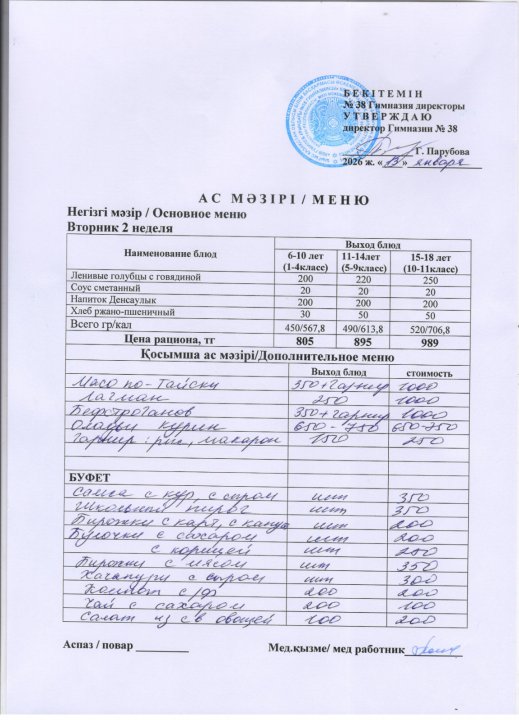 БЕКІТЕМІН
№ 38 Гимназия директоры
УТВЕРЖДАЮ
директор Гимназии № 38
Г. Парубова
2026 ж. « 13 » января
АС МӘЗІРІ / МЕНЮ
Негізгі мәзір / Основное меню
Вторник 2 неделя
Наименование блюд Выход блюд
6-10 лет (1-4классе) 11-14лет (5-9классе) 15-18 лет (10-11класс)
Ленивые голубцы с говядиной 200 220 250
Соус сметанный 20 20 20
Напиток Денсаулык 200 200 200
Хлеб ржано-пшеничный 30 50 50
Всего гр/кал 450/567,8 490/613,8 520/706,8
Цена рациона, тг 805 895 989
Қосымша ас мәзірі/Дополнительное меню
Выход блюд стоимость
Мясо по-тайски 350+гарнир 1000
Лагман 250 1000
Бефстроганов 350+гарнир 1000
Оладьи курин 650-750 650-750
Гарнир: рис, макарон 150 250
БУФЕТ
Самса с кур, с сыром шт 350
Школьный пирог шт 350
Пирожки с карт, с капус шт 200
Булочки с сахаром шт 200
с корицей шт 250
Пирожки с мясом шт 350
Хачапури с сыром шт 300
Компот с/ф 200 200
Чай с сахаром 200 100
Салат из св овощей 100 200
Аспаз / повар
Мед.қызме/ мед работник